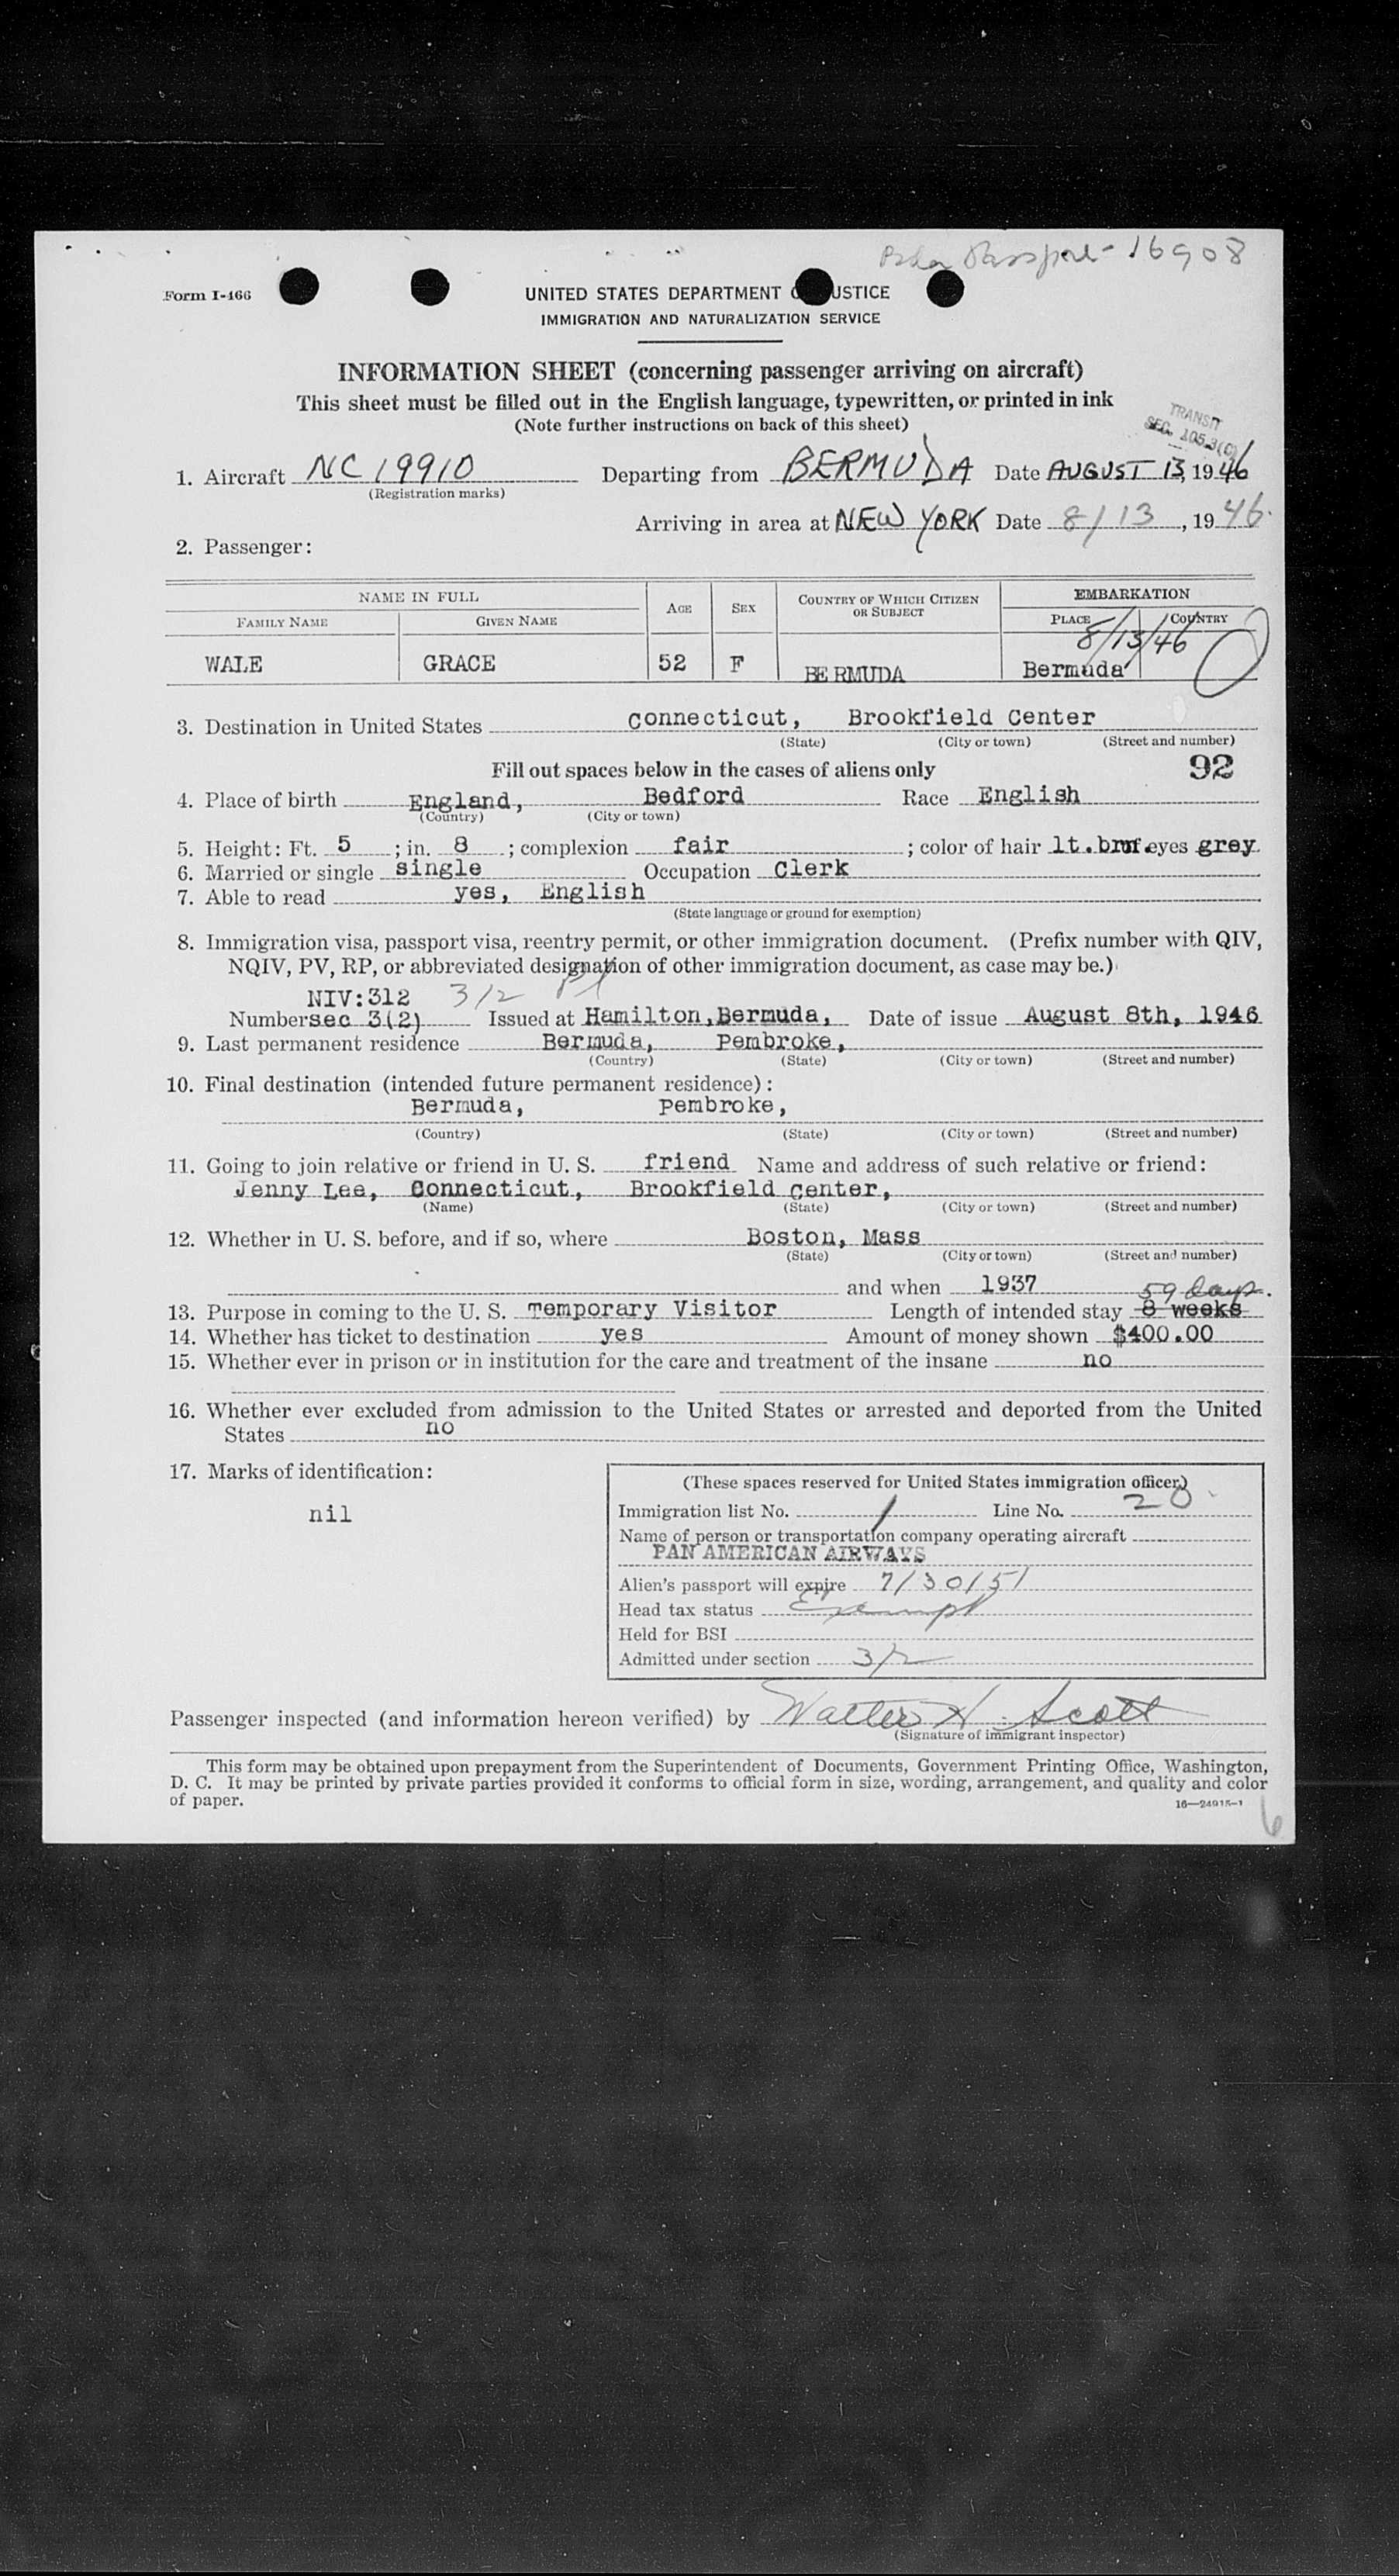 Passport - 16908
Form I-466
UNITED STATES DEPARTMENT OF JUSTICE
IMMIGRATION AND NATURALIZATION SERVICE
INFORMATION SHEET (concerning passenger arriving on aircraft)
This sheet must be filled out in the English language, typewritten, or printed in ink
(Note further instructions on back of this sheet)
TRANSIT
SEC. 105.3(C)
1. Aircraft NC 19910 Departing from BERMUDA Date AUGUST 13, 1946
(Registration marks)
Arriving in area at NEW YORK Date 8/13, 1946.
2. Passenger:
NAME IN FULL AGE SEX COUNTRY OF WHICH CITIZEN OR SUBJECT EMBARKATION
FAMILY NAME GIVEN NAME PLACE COUNTRY
8/13/46
WALE GRACE 52 F BERMUDA Bermuda
3. Destination in United States Connecticut, Brookfield Center
(State) (City or town) (Street and number)
Fill out spaces below in the cases of aliens only 92
4. Place of birth England, Bedford Race English
(Country) (City or town)
5. Height: Ft. 5; in. 8; complexion fair; color of hair lt.brn. eyes grey
6. Married or single single Occupation Clerk
7. Able to read yes, English
(State language or ground for exemption)
8. Immigration visa, passport visa, reentry permit, or other immigration document. (Prefix number with QIV,
NQIV, PV, RP, or abbreviated designation of other immigration document, as case may be.)
NIV:312 3/2
Number sec 3(2) Issued at Hamilton, Bermuda, Date of issue August 8th, 1946
9. Last permanent residence Bermuda, Pembroke,
(Country) (State) (City or town) (Street and number)
10. Final destination (intended future permanent residence):
Bermuda, Pembroke,
(Country) (State) (City or town) (Street and number)
11. Going to join relative or friend in U. S. friend Name and address of such relative or friend:
Jenny Lee, Connecticut, Brookfield Center,
(Name) (State) (City or town) (Street and number)
12. Whether in U. S. before, and if so, where Boston, Mass
(State) (City or town) (Street and number)
and when 1937 59 days.
13. Purpose in coming to the U. S. Temporary Visitor Length of intended stay 8 weeks
14. Whether has ticket to destination yes Amount of money shown $400.00
15. Whether ever in prison or in institution for the care and treatment of the insane no
16. Whether ever excluded from admission to the United States or arrested and deported from the United
States no
17. Marks of identification:
nil
(These spaces reserved for United States immigration officer)
Immigration list No. 1 Line No. 20
Name of person or transportation company operating aircraft
PAN AMERICAN AIRWAYS
Alien's passport will expire 7/30/51
Head tax status Exempt
Held for BSI
Admitted under section 3/2
Passenger inspected (and information hereon verified) by Walter H. Scott
(Signature of immigrant inspector)
This form may be obtained upon prepayment from the Superintendent of Documents, Government Printing Office, Washington,
D. C. It may be printed by private parties provided it conforms to official form in size, wording, arrangement, and quality and color
of paper.
16—24915-1
6